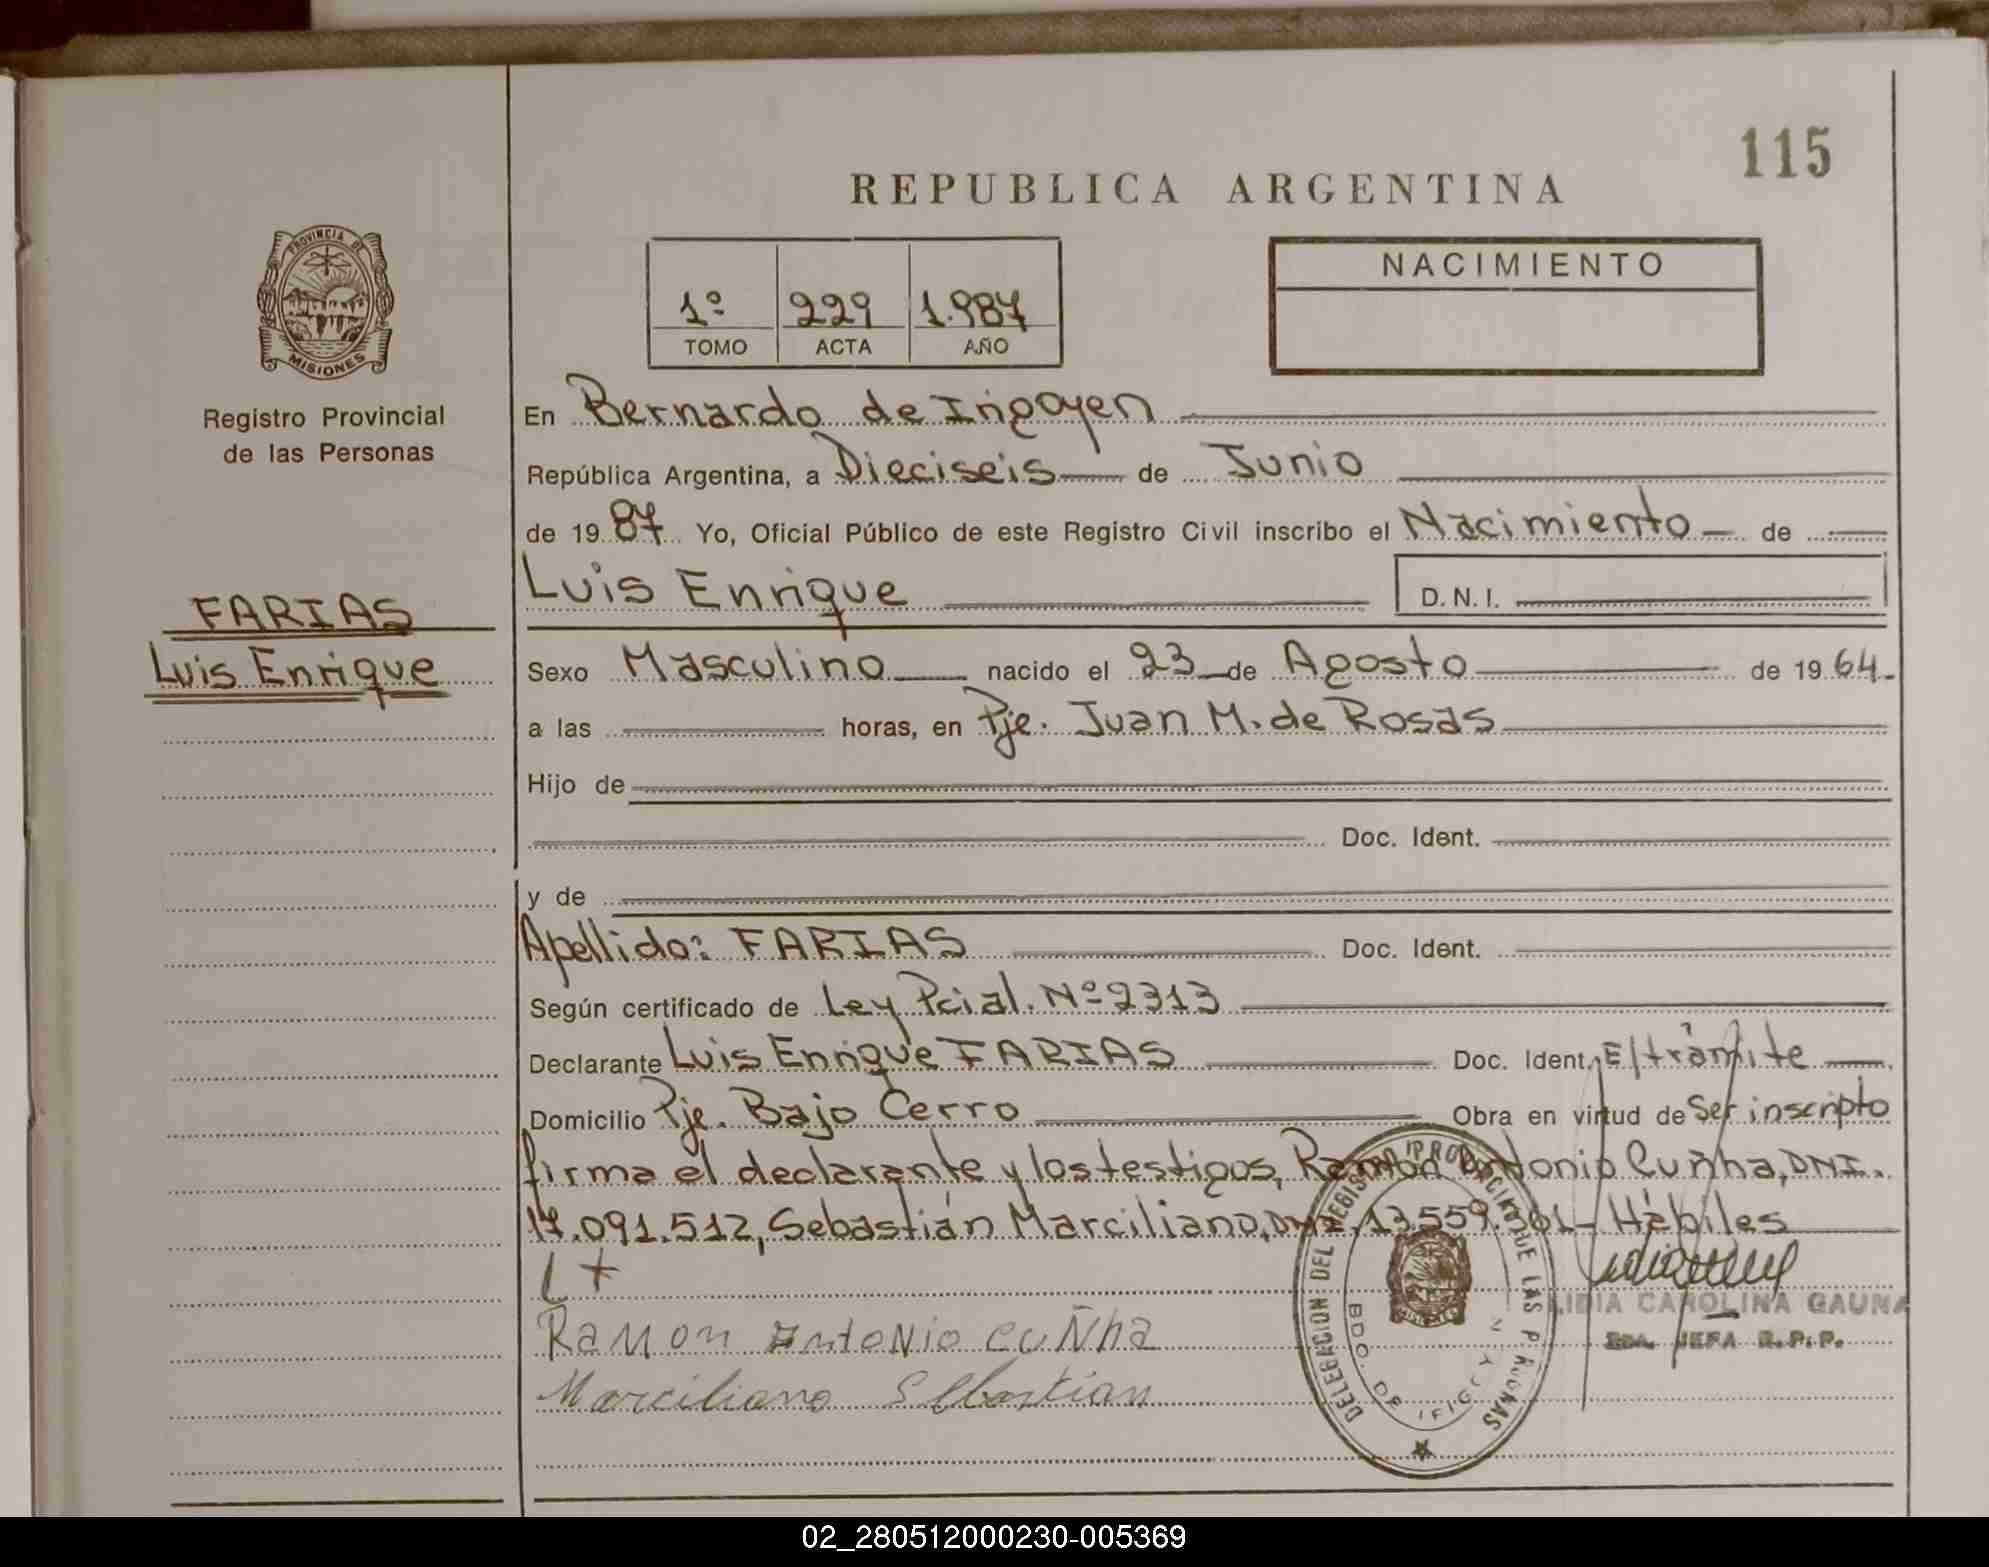 115
REPUBLICA ARGENTINA
PROVINCIA DE
MISIONES
Registro Provincial
de las Personas
1º 229 1.987
TOMO ACTA AÑO
NACIMIENTO
En Bernardo de Irigoyen
República Argentina, a Dieciseis de Junio
de 19 87 Yo, Oficial Público de este Registro Civil inscribo el Nacimiento de
Luis Enrique D.N.I.
FARIAS
Luis Enrique
Sexo Masculino nacido el 23 de Agosto de 19 64
a las horas, en Pje. Juan M. de Rosas
Hijo de
Doc. Ident.
y de
Apellido: FARIAS Doc. Ident.
Según certificado de Ley Pcial. Nº 2313
Declarante Luis Enrique FARIAS Doc. Ident. E/trámite
Domicilio Pje. Bajo Cerro Obra en virtud de Ser inscripto
firma el declarante y los testigos, Ramón Antonio Cuñha, DNI.
17.091.512, Sebastián Marciliano, DNI, 13.559. - Hábiles
L +
Ramon Antonio Cuñha
Marciliano Sebastian
DELEGACION DEL REGISTRO PROVINCIAL DE LAS PERSONAS
BDO. DE IRIGOYEN
LIDIA CAROLINA GAUNA
JEFA R.P.P.
02_280512000230-005369